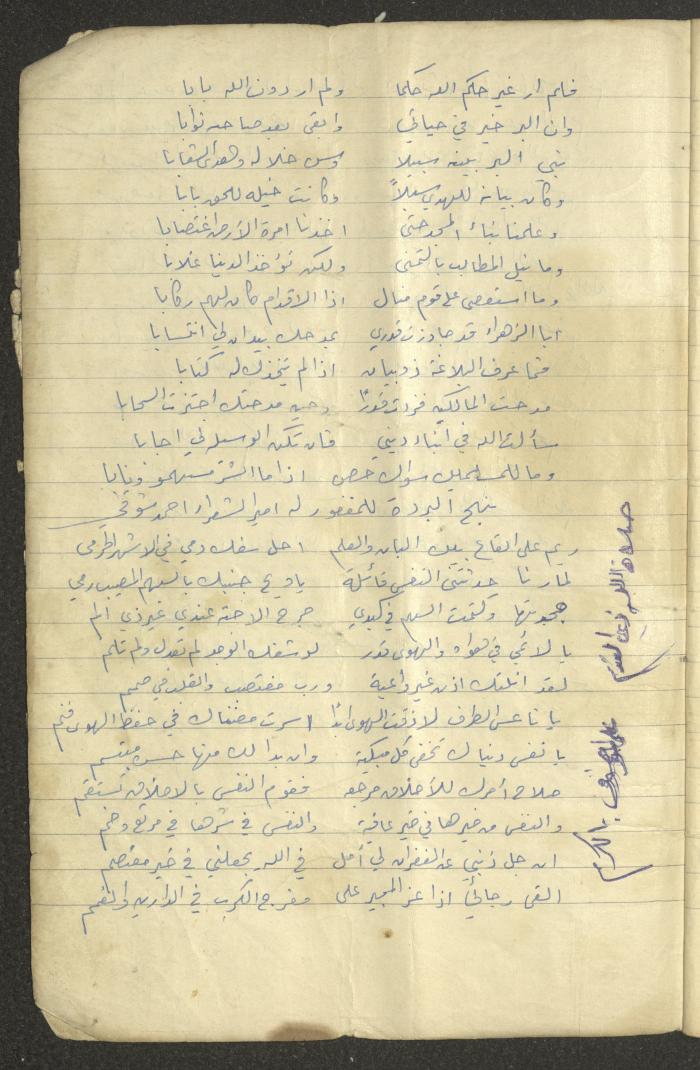 فلم ار غير حكم الله حكما ولم ار دون الله بابا
وان البر خير في حياتي وابقى بعد صاحبه ثوابا
نبي البر بينه سبيلا وسن خلاله وهدى الشعابا
وكان بيانه للهدي سبلاً وكانت خيله للحق بابا
وعلمنا بناء المجد حتى اخذنا امرة الارض اغتصابا
وما نيل المطالب بالتمني ولكن تؤخذ الدنيا غلابا
وما استعصى على قوم منال اذا الاقدام كان لهم ركابا
ابا الزهراء قد جاوزت قدري بمدحك بيد ان لي انتسابا
فما عرف البلاغة ذو بيان اذا لم يتخذك له كتابا
مدحت المالكين فزدت قدراً وحين مدحتك اجتزت السحابا
سألت الله في ابناء ديني فان تكن الوسيله لي اجابا
وما للمسلمين سواك حصن اذا ما الضر مسهمو ونابا
نهج البردة للمغفور له امير الشعراء احمد شوقي
ريم على القاع بين البان والعلم احل سفك دمي في الاشهر الحرم
لما رنا حدثتني النفس قائلة يا ويح جنبك بالسهم المصيب رمي
جحدتها وكتمت السهم في كبدي جرح الاحبة عندي غير ذي الم
يا لائمي في هواه والهوى قدر لو شفك الوجد لم تعذل ولم تلم
لقد انلتك اذن غير واعية ورب منتصت والقلب في صمم
يا ناعس الطرف لا ذقت الهوى ابدًا اسهرت مضناك في حفظ الهوى فنم
يا نفس دنياك تخفي كل مبكية وان بدا لك منها حسن مبتسم
صلاح أمرك للأخلاق مرجعه فقوم النفس بالاخلاق تستقم
والنفس من خيرها في خير عافية والنفس في شرها في مرتع وخم
ان جل ذنبي عن الغفران لي أمل في الله يجعلني في خير معتصم
القى رجائي اذا عز المجير على مفرج الكرب في الدارين والغمم